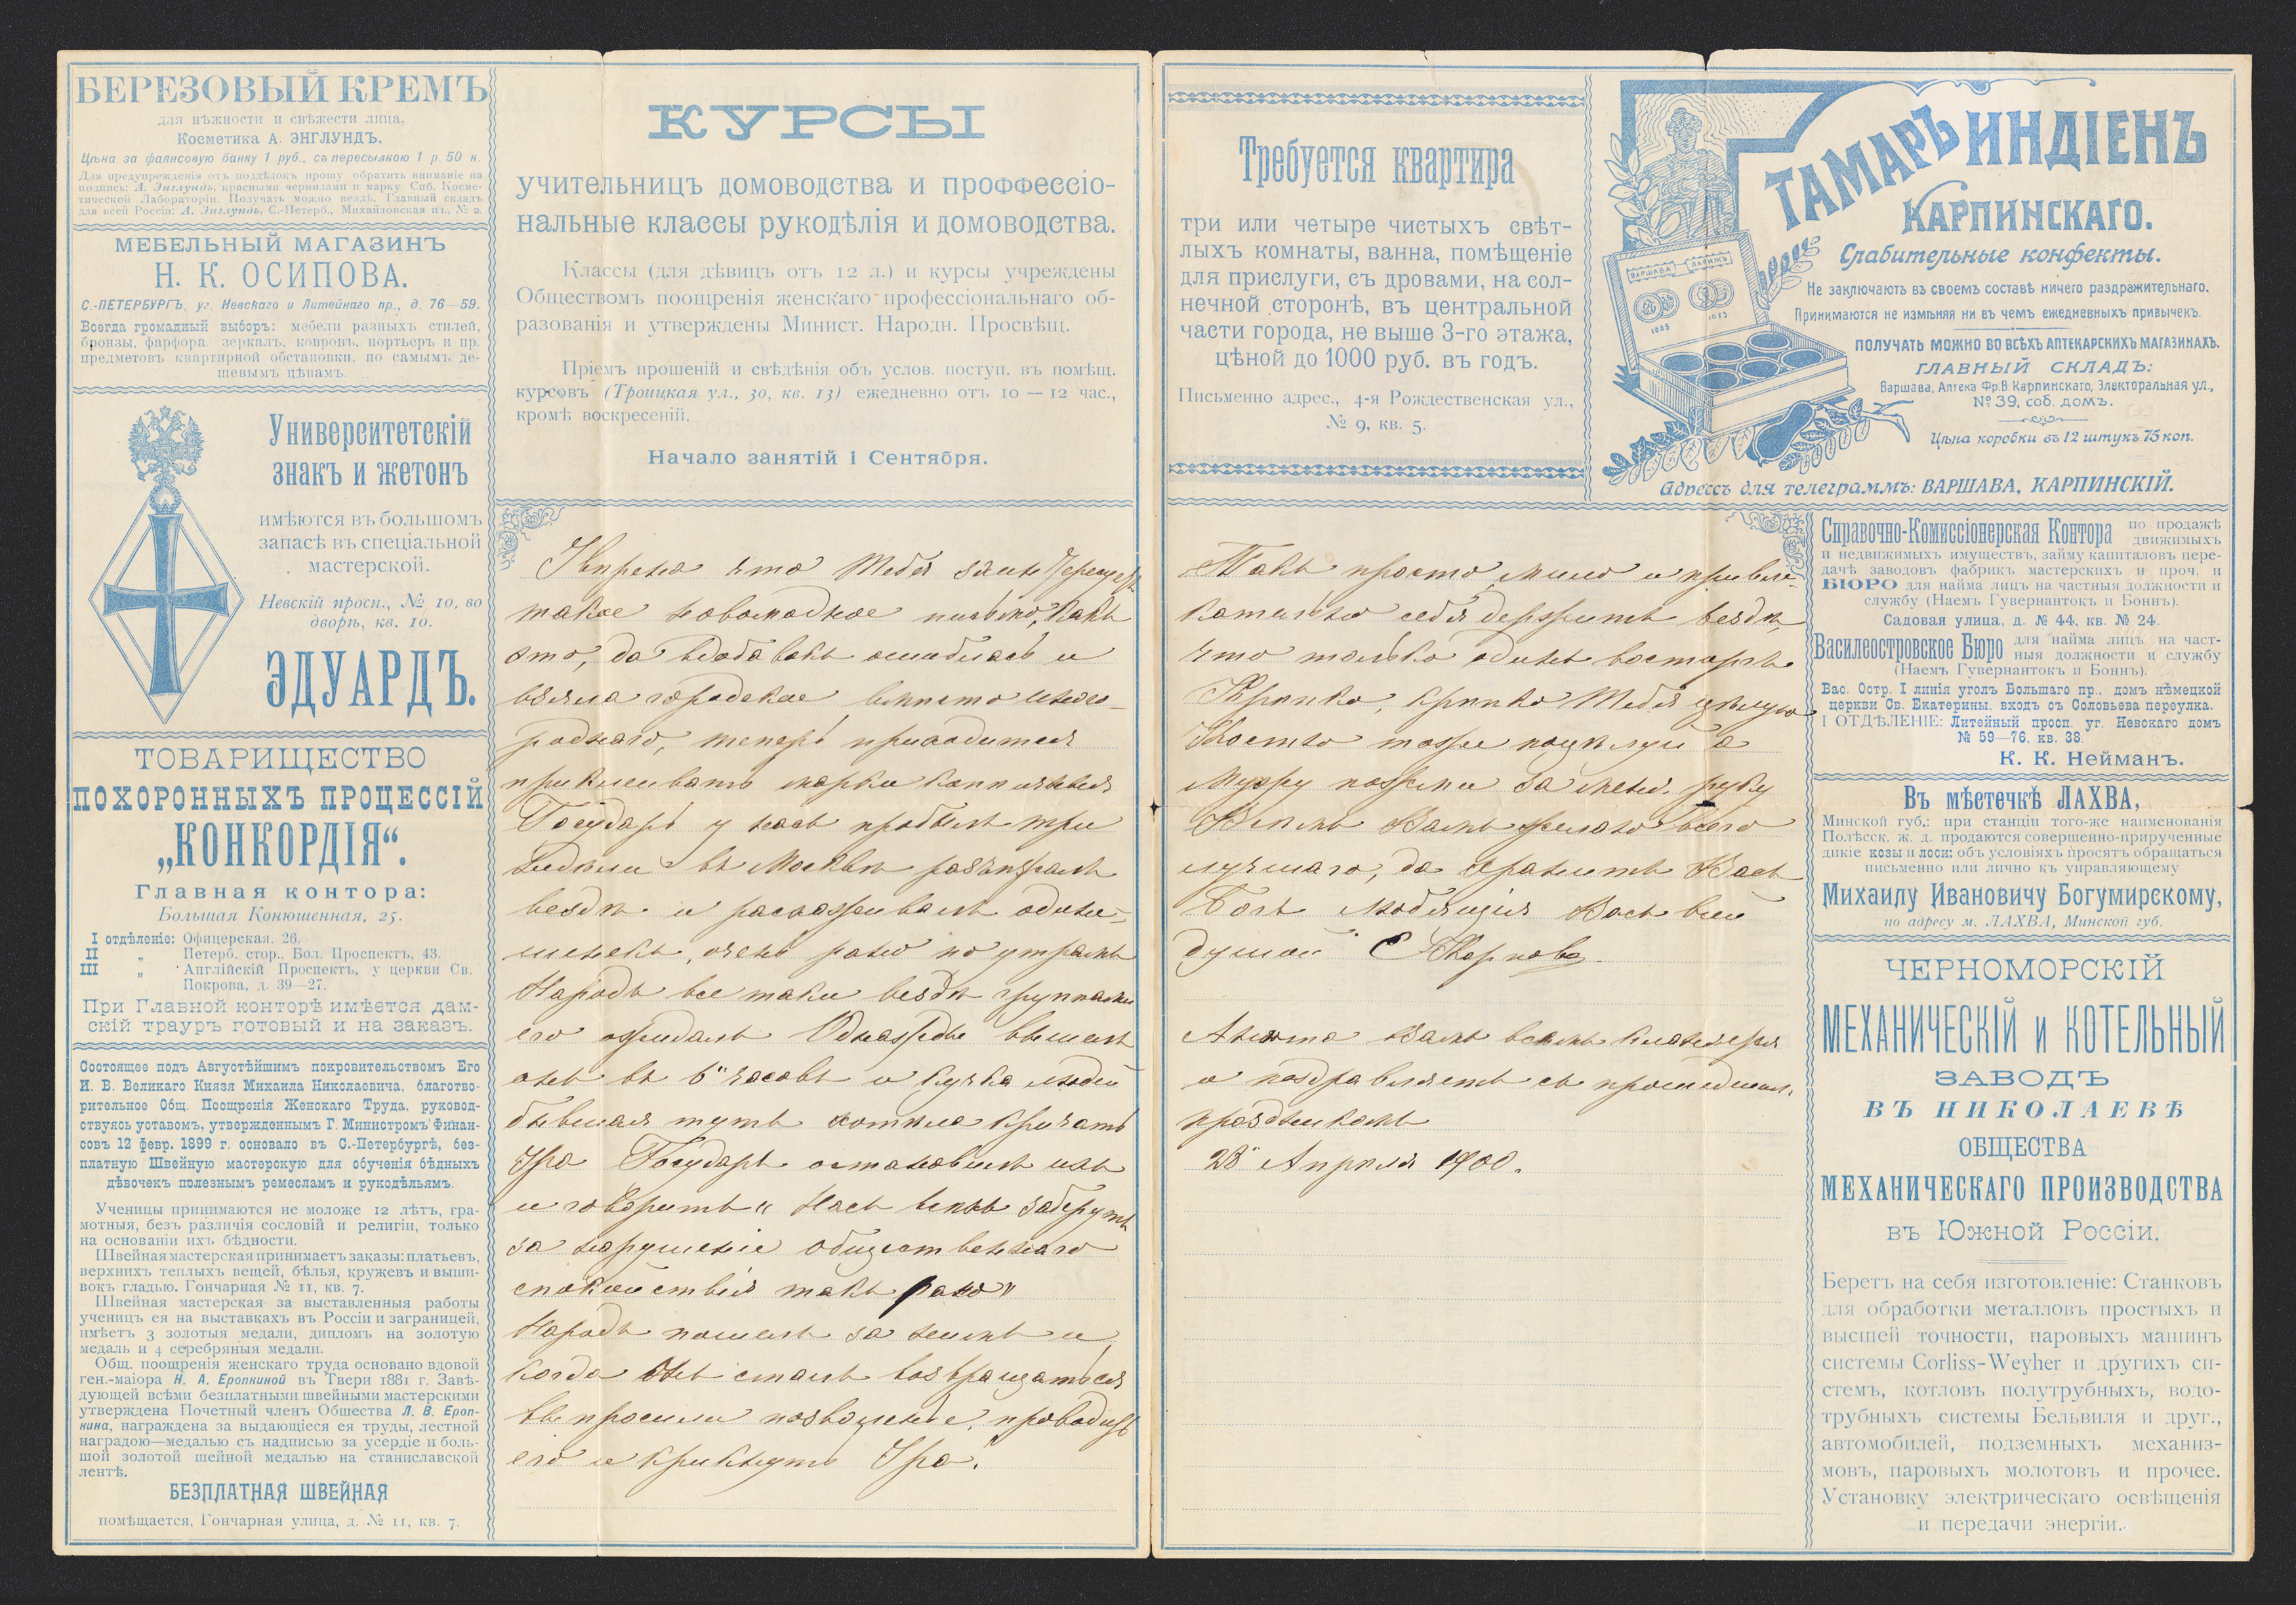 БЕРЕЗОВЫЙ КРЕМЪ
для нѣжности и свѣжести лица,
Косметика А. ЭНГЛУНДЪ.
Цѣна за фаянсовую банку 1 руб., съ пересылкою 1 р. 50 к.
Для предупрежденія отъ поддѣлокъ прошу обратить вниманіе на
подпись: А. Энглундъ, красными чернилами и марку Спб. Косме-
тической Лабораторіи. Получать можно вездѣ. Главный складъ
для всей Россіи: А. Энглундъ, С.-Петерб., Михайловская пл., № 2.
МЕБЕЛЬНЫЙ МАГАЗИНЪ
Н. К. ОСИПОВА.
С.-ПЕТЕРБУРГЪ, уг. Невскаго и Литейнаго пр., д. 76—59.
Всегда громадный выборъ: мебели разныхъ стилей,
бронзы, фарфора, зеркалъ, ковровъ, портьеръ и пр.
предметовъ квартирной обстановки, по самымъ де-
шевымъ цѣнамъ.
Университетскій
знакъ и жетонъ
имѣются въ большомъ
запасѣ въ спеціальной
мастерской.
Невскій просп., № 10, во
дворѣ, кв. 10.
ЭДУАРДЪ.
ТОВАРИЩЕСТВО
ПОХОРОННЫХЪ ПРОЦЕССІЙ
„КОНКОРДІЯ“.
Главная контора:
Большая Конюшенная, 25.
I отдѣленіе: Офицерская, 26.
II „ Петерб. стор., Бол. Проспектъ, 43.
III „ Англійскій Проспектъ, у церкви Св.
Покрова, д. 39—27.
При Главной конторѣ имѣется дам-
скій трауръ готовый и на заказъ.
Состоящее подъ Августѣйшимъ покровительствомъ Его
И. В. Великаго Князя Михаила Николаевича, благотво-
рительное Общ. Поощренія Женскаго Труда, руковод-
ствуясь уставомъ, утвержденнымъ Г. Министромъ Финан-
совъ 12 февр. 1899 г. основало въ С.-Петербургѣ, без-
платную Швейную мастерскую для обученія бѣдныхъ
дѣвочекъ полезнымъ ремесламъ и рукодѣльямъ.
Ученицы принимаются не моложе 12 лѣтъ, гра-
мотныя, безъ различія сословій и религіи, только
на основаніи ихъ бѣдности.
Швейная мастерская принимаетъ заказы: платьевъ,
верхнихъ теплыхъ вещей, бѣлья, кружевъ и выши-
вокъ гладью. Гончарная № 11, кв. 7.
Швейная мастерская за выставленныя работы
ученицъ ея на выставкахъ въ Россіи и заграницей,
имѣетъ 3 золотыя медали, дипломъ на золотую
медаль и 4 серебряныя медали.
Общ. поощренія женскаго труда основано вдовой
ген.-маіора Н. А. Еропкиной въ Твери 1881 г. Завѣ-
дующей всѣми безплатными швейными мастерскими
утверждена Почетный членъ Общества Л. В. Ероп-
кина, награждена за выдающіеся ея труды, лестной
наградою—медалью съ надписью за усердіе и боль-
шой золотой шейной медалью на станиславской
лентѣ.
БЕЗПЛАТНАЯ ШВЕЙНАЯ
помѣщается, Гончарная улица, д. № 11, кв. 7.
КУРСЫ
учительницъ домоводства и проффессіо-
нальные классы рукодѣлія и домоводства.
Классы (для дѣвицъ отъ 12 л.) и курсы учреждены
Обществомъ поощренія женскаго профессіональнаго об-
разованія и утверждены Минист. Народн. Просвѣщ.
Пріемъ прошеній и свѣдѣнія объ услов. поступ. въ помѣщ.
курсовъ (Троицкая ул., 30, кв. 13) ежедневно отъ 10 — 12 час.,
кромѣ воскресеній.
Начало занятій 1 Сентября.
что Тебя
такое новомодное письмо, какъ
это, да вдобавокъ ошиблась и
взяла городское вмѣсто иного-
роднаго, теперь приходится
приклеивать марки
Государь у насъ пробылъ три
недѣли въ Москвѣ
вездѣ и расхаживалъ одине-
шенекъ, очень рано по утрамъ
Народъ все таки вездѣ группами
его ожидалъ Однажды вышелъ
онъ въ 6" часовъ и кучка людей
бывшая тутъ хотѣла кричать
Ура Государь остановилъ ихъ
и говоритъ „ Насъ всѣхъ заберутъ
за нарушеніе общественнаго
спокойствія такъ рано "
Народъ пошелъ за нимъ и
когда Онъ сталъ возвращаться
выпросили позволенье, проводить
его и крикнуть Ура.
Требуется квартира
три или четыре чистыхъ свѣт-
лыхъ комнаты, ванна, помѣщеніе
для прислуги, съ дровами, на сол-
нечной сторонѣ, въ центральной
части города, не выше 3-го этажа,
цѣной до 1000 руб. въ годъ.
Письменно адрес., 4-я Рождественская ул.,
№ 9, кв. 5.
ВАРШАВА ПАРИЖЪ
1885 1883
ТАМАРЪ ИНДІЕНЪ
КАРПИНСКАГО.
Слабительные конфекты.
Не заключаютъ въ своемъ составѣ ничего раздражительнаго.
Принимаются не измѣняя ни въ чемъ ежедневныхъ привычекъ.
ПОЛУЧАТЬ МОЖНО ВО ВСѢХЪ АПТЕКАРСКИХЪ МАГАЗИНАХЪ.
ГЛАВНЫЙ СКЛАДЪ:
Варшава, Аптека Фр. В. Карпинскаго, Электоральная ул.,
№ 39, соб. домъ.
Цѣна коробки въ 12 штукъ 75 коп.
Адрессъ для телеграммъ: ВАРШАВА, КАРПИНСКІЙ.
Такъ просто, мило и привле-
кательно себя держитъ вездѣ,
что только одинъ восторгъ
Крѣпко, крѣпко Тебя цѣлую
Костю тоже поцѣлуй а
пожми за меня руку
Всѣмъ Вамъ желаю всего
лучшаго, да хранитъ Васъ
Богъ любящая Васъ всей
душой Е Карпова.
Анюта Вамъ всѣмъ кланяется
и поздравляетъ съ прошедшимъ
праздникомъ
28" Апрѣля 1900.
Справочно-Комиссіонерская Контора по продажѣ
движимыхъ
и недвижимыхъ имуществъ, займу капиталовъ пере-
дачѣ заводовъ фабрикъ мастерскихъ и проч. и
БЮРО для найма лицъ на частныя должности и
службу (Наемъ Гувернантокъ и Боннъ).
Садовая улица, д. № 44, кв. № 24.
Василеостровское Бюро для найма лицъ на част-
ныя должности и службу
(Наемъ Гувернантокъ и Боннъ).
Вас. Остр. I линія уголъ Большаго пр., домъ нѣмецкой
церкви Св. Екатерины, входъ съ Соловьева переулка.
I ОТДѢЛЕНІЕ: Литейный просп. уг. Невскаго домъ
№ 59—76, кв. 38.
К. К. Нейманъ.
Въ мѣстечкѣ ЛАХВА,
Минской губ.: при станціи того-же наименованія
Полѣсск. ж. д. продаются совершенно-прирученные
дикіе козы и лоси: объ условіяхъ просятъ обращаться
письменно или лично къ управляющему
Михаилу Ивановичу Богумирскому,
по адресу м. ЛАХВА, Минской губ.
ЧЕРНОМОРСКІЙ
МЕХАНИЧЕСКІЙ и КОТЕЛЬНЫЙ
ЗАВОДЪ
ВЪ НИКОЛАЕВѢ
ОБЩЕСТВА
МЕХАНИЧЕСКАГО ПРОИЗВОДСТВА
въ Южной Россіи.
Беретъ на себя изготовленіе: Станковъ
для обработки металловъ простыхъ и
высшей точности, паровыхъ машинъ
системы Corliss-Weyher и другихъ си-
стемъ, котловъ полутрубныхъ, водо-
трубныхъ системы Бельвиля и друг.,
автомобилей, подземныхъ механиз-
мовъ, паровыхъ молотовъ и прочее.
Установку электрическаго освѣщенія
и передачи энергіи.